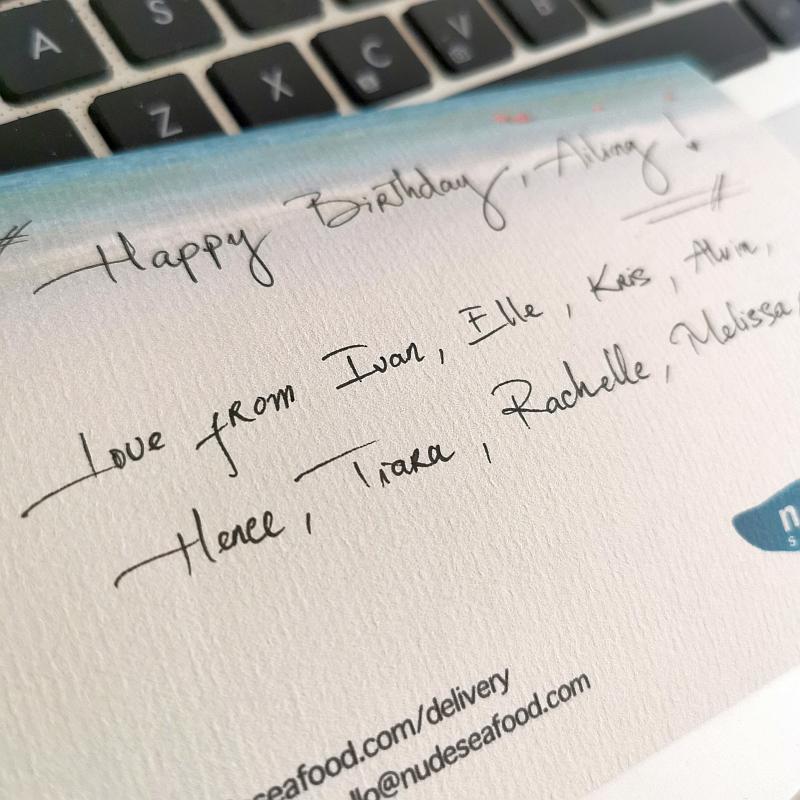 A S
Z X C V B
Happy Birthday, Ailing!
Love from Ivan, Elle, Kris, Alvin,
Hence, Tiara, Rachelle, Melissa,
n
s
seafood.com/delivery
llo@nudeseafood.com